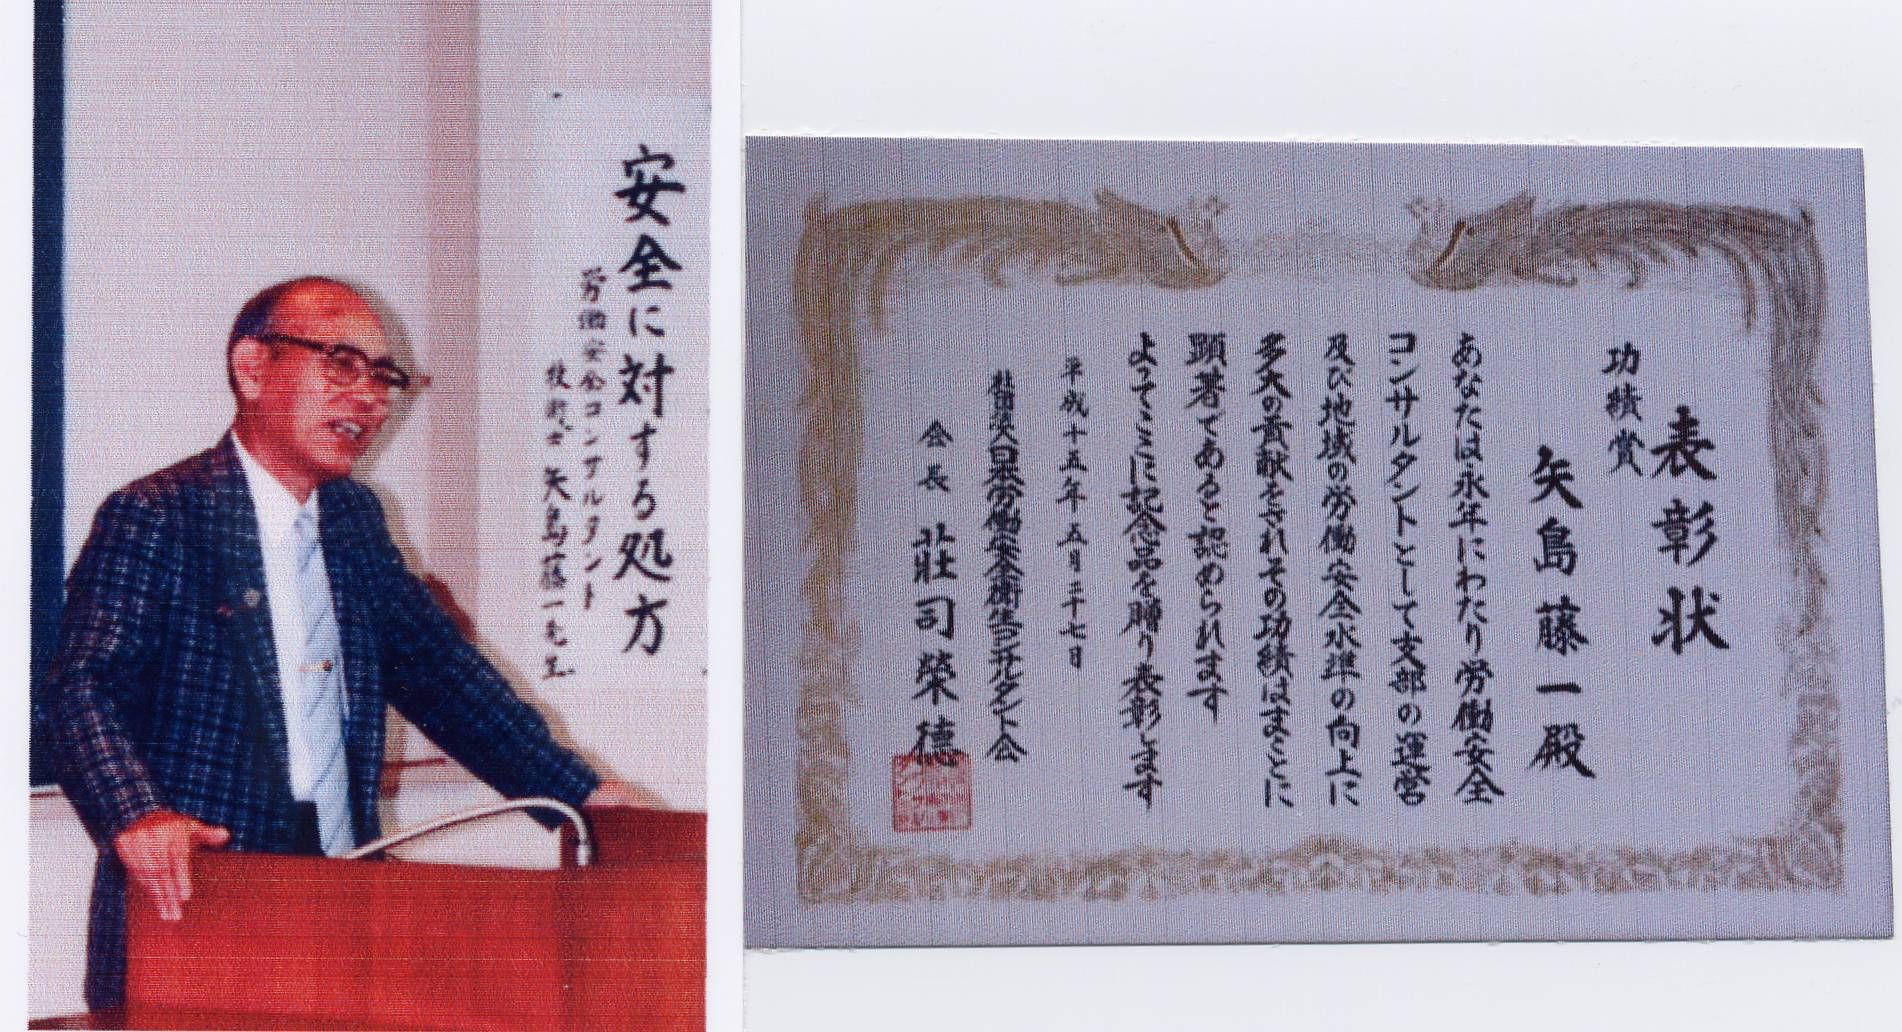 安全に対する処方
労働安全コンサルタント
技術士 矢島藤一先生
表彰状
功績賞
矢島藤一殿
あなたは永年にわたり労働安全
コンサルタントとして支部の運営
及び地域の労働安全水準の向上に
多大の貢献をされその功績はまことに
顕著であると認められます
よってここに記念品を贈り表彰します
平成十五年五月二十七日
社団法人日本労働安全衛生コンサルタント会
会長 荘司榮徳